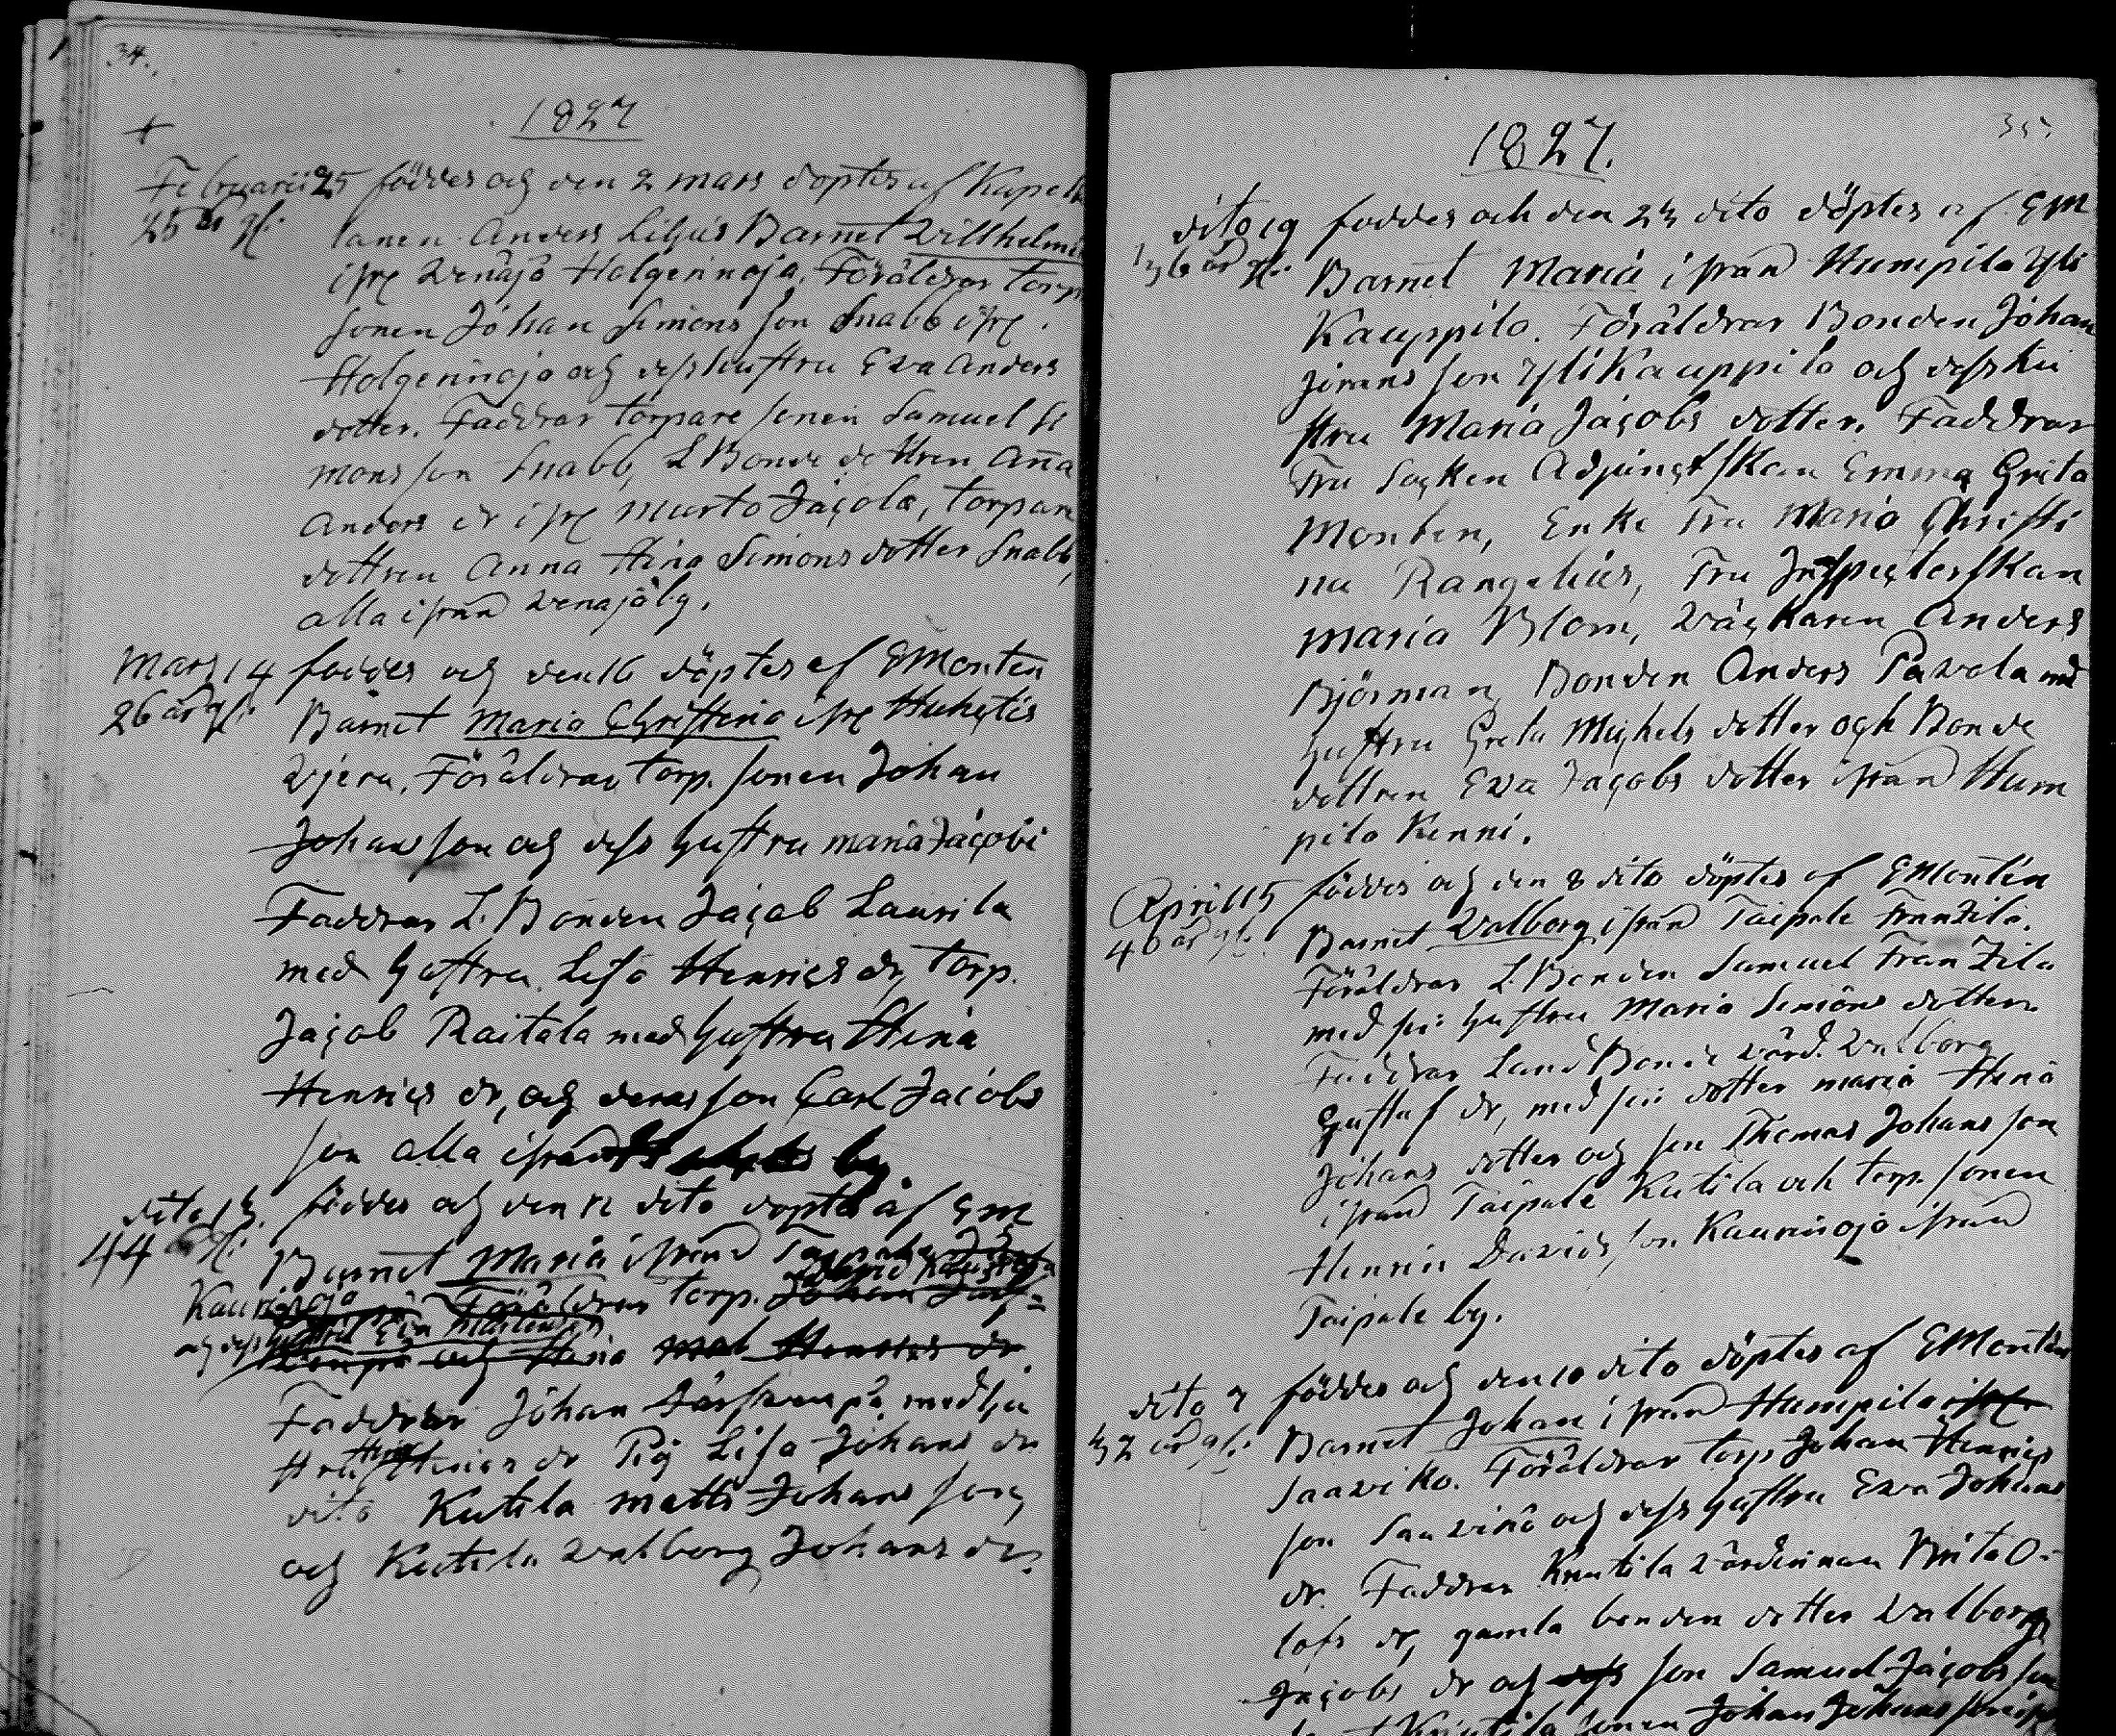 34.
1827
Februarii 25 föddes och den 2 mars döptes af Kapel
25 år gl: lanen Anders Liljus Barnet Willhelmi
ifr Wenäjö Holgerinoja, Föräldrar torp
sonen Johan Simons son Snabb ifr.
Holgerinoja och dess hustru Eva Anders
dotter. Faddrar torpare sonen Samuel Si
mons son Snabb, L Bonde dottren Anna
Anders dr ifr Murto Jacola, torpare
dottren Anna Stina Simons dotter Snabb,
alla ifrån Wenäjä by.
Mars 14 föddes och den 16 döptes af E Monten
26 år gl: Barnet Maria Christina ifr Huhtis
Wjeru. Föräldrar torp. sonen Johan
Johans son och dess hustru Maria Jacobi
Faddrar L. Bonden Jacob Laurila
med hustru Lisa Henrics dr, torp.
Jacob Raitala med hustru Stina
Henrics dr, och deras son Carl Jacobs
son alla ifrån by
dito 15. föddes och den dito döptes af EM
44 år gl: Barnet Maria ifrån
Kaurinoja Föräldrar torp. David
och dess hustru
och Stina Henrics dr
Faddrar Johan med hu
stru Stina Henrics dr Pig Lisa Johans dr
dito Kutila Matts Johans son,
och Kutila Walborg Johans dr.
35.
1827.
dito 19 föddes och den 23 dito döptes af EM
36 år gl: Barnet Maria ifrån Humpila Yli
Kauppila. Föräldrar Bonden Johan
Jeremi son Yli Kauppila och dess hu
stru Maria Jacobs dotter. Faddrar
Fru Socken Adjunctskan Emma Greta
Monten, Enke Fru Maria Christi
na Rangelius, Fru Inspectorskan
Maria Blom, Wäckaren Anders
Björman, Bonden Anders Pawola md
hustru Greta Michels dotter och Bonde
dottren Eva Jacobs dotter ifrån Hum
pila Kenni.
Aprill 5 föddes och den 8 dito döptes af E Montén
40 år gl. Barnet Walborg ifrån Taipale Franzila.
Föräldrar L. Bonden Samuel Franzila
med sin hustru Maria Simons dotter.
Faddrar Land Bonde värd. Walborg
Gustaf dr, med sin dotter Maria Stina
Johans dotter och son Thomas Johans son
ifrån Taipale Kutila och torp. sonen
Henric Davids son Kaurinoja ifrån
Taipale by.
dito 7 föddes och den 10 dito döptes af E Montén
32 år gl: Barnet Johan ifrån Humpila ifr
Saaviko. Föräldrar torp Johan Henrics
son Saaviko och dess hustru Eva Johans
dr. Faddrar Knutila värdinnan Brita O-
lofs dr, gamla bonden dotter Walborg
Jacobs dr och dess son Samuel Jacobs son
Knutila sonen Johan Johans son